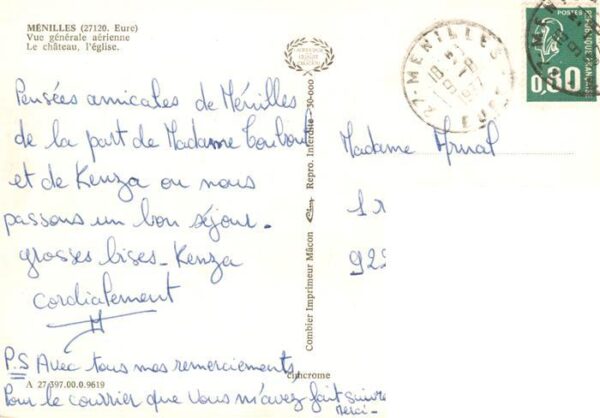 MÉNILLES (27120. Eure)
Vue générale aérienne
Le château, l'église.
Pensées amicales de Ménilles
de la part de Madame
et de Kenza ou nous
passons un bon séjour.
grosses bises - Kenza
cordialement
P.S Avec tous mes remerciements
Pour le courrier que vous m'avez fait suivre
merci -
A 27 397.00.0.9619
Combier Imprimeur Mâcon
Repro. Interdite - 30-000
cimcrome
27-MENILLES
EURE
POSTES
0,80
REPUBLIQUE FRANÇAISE
Madame Arnal
1 r
922